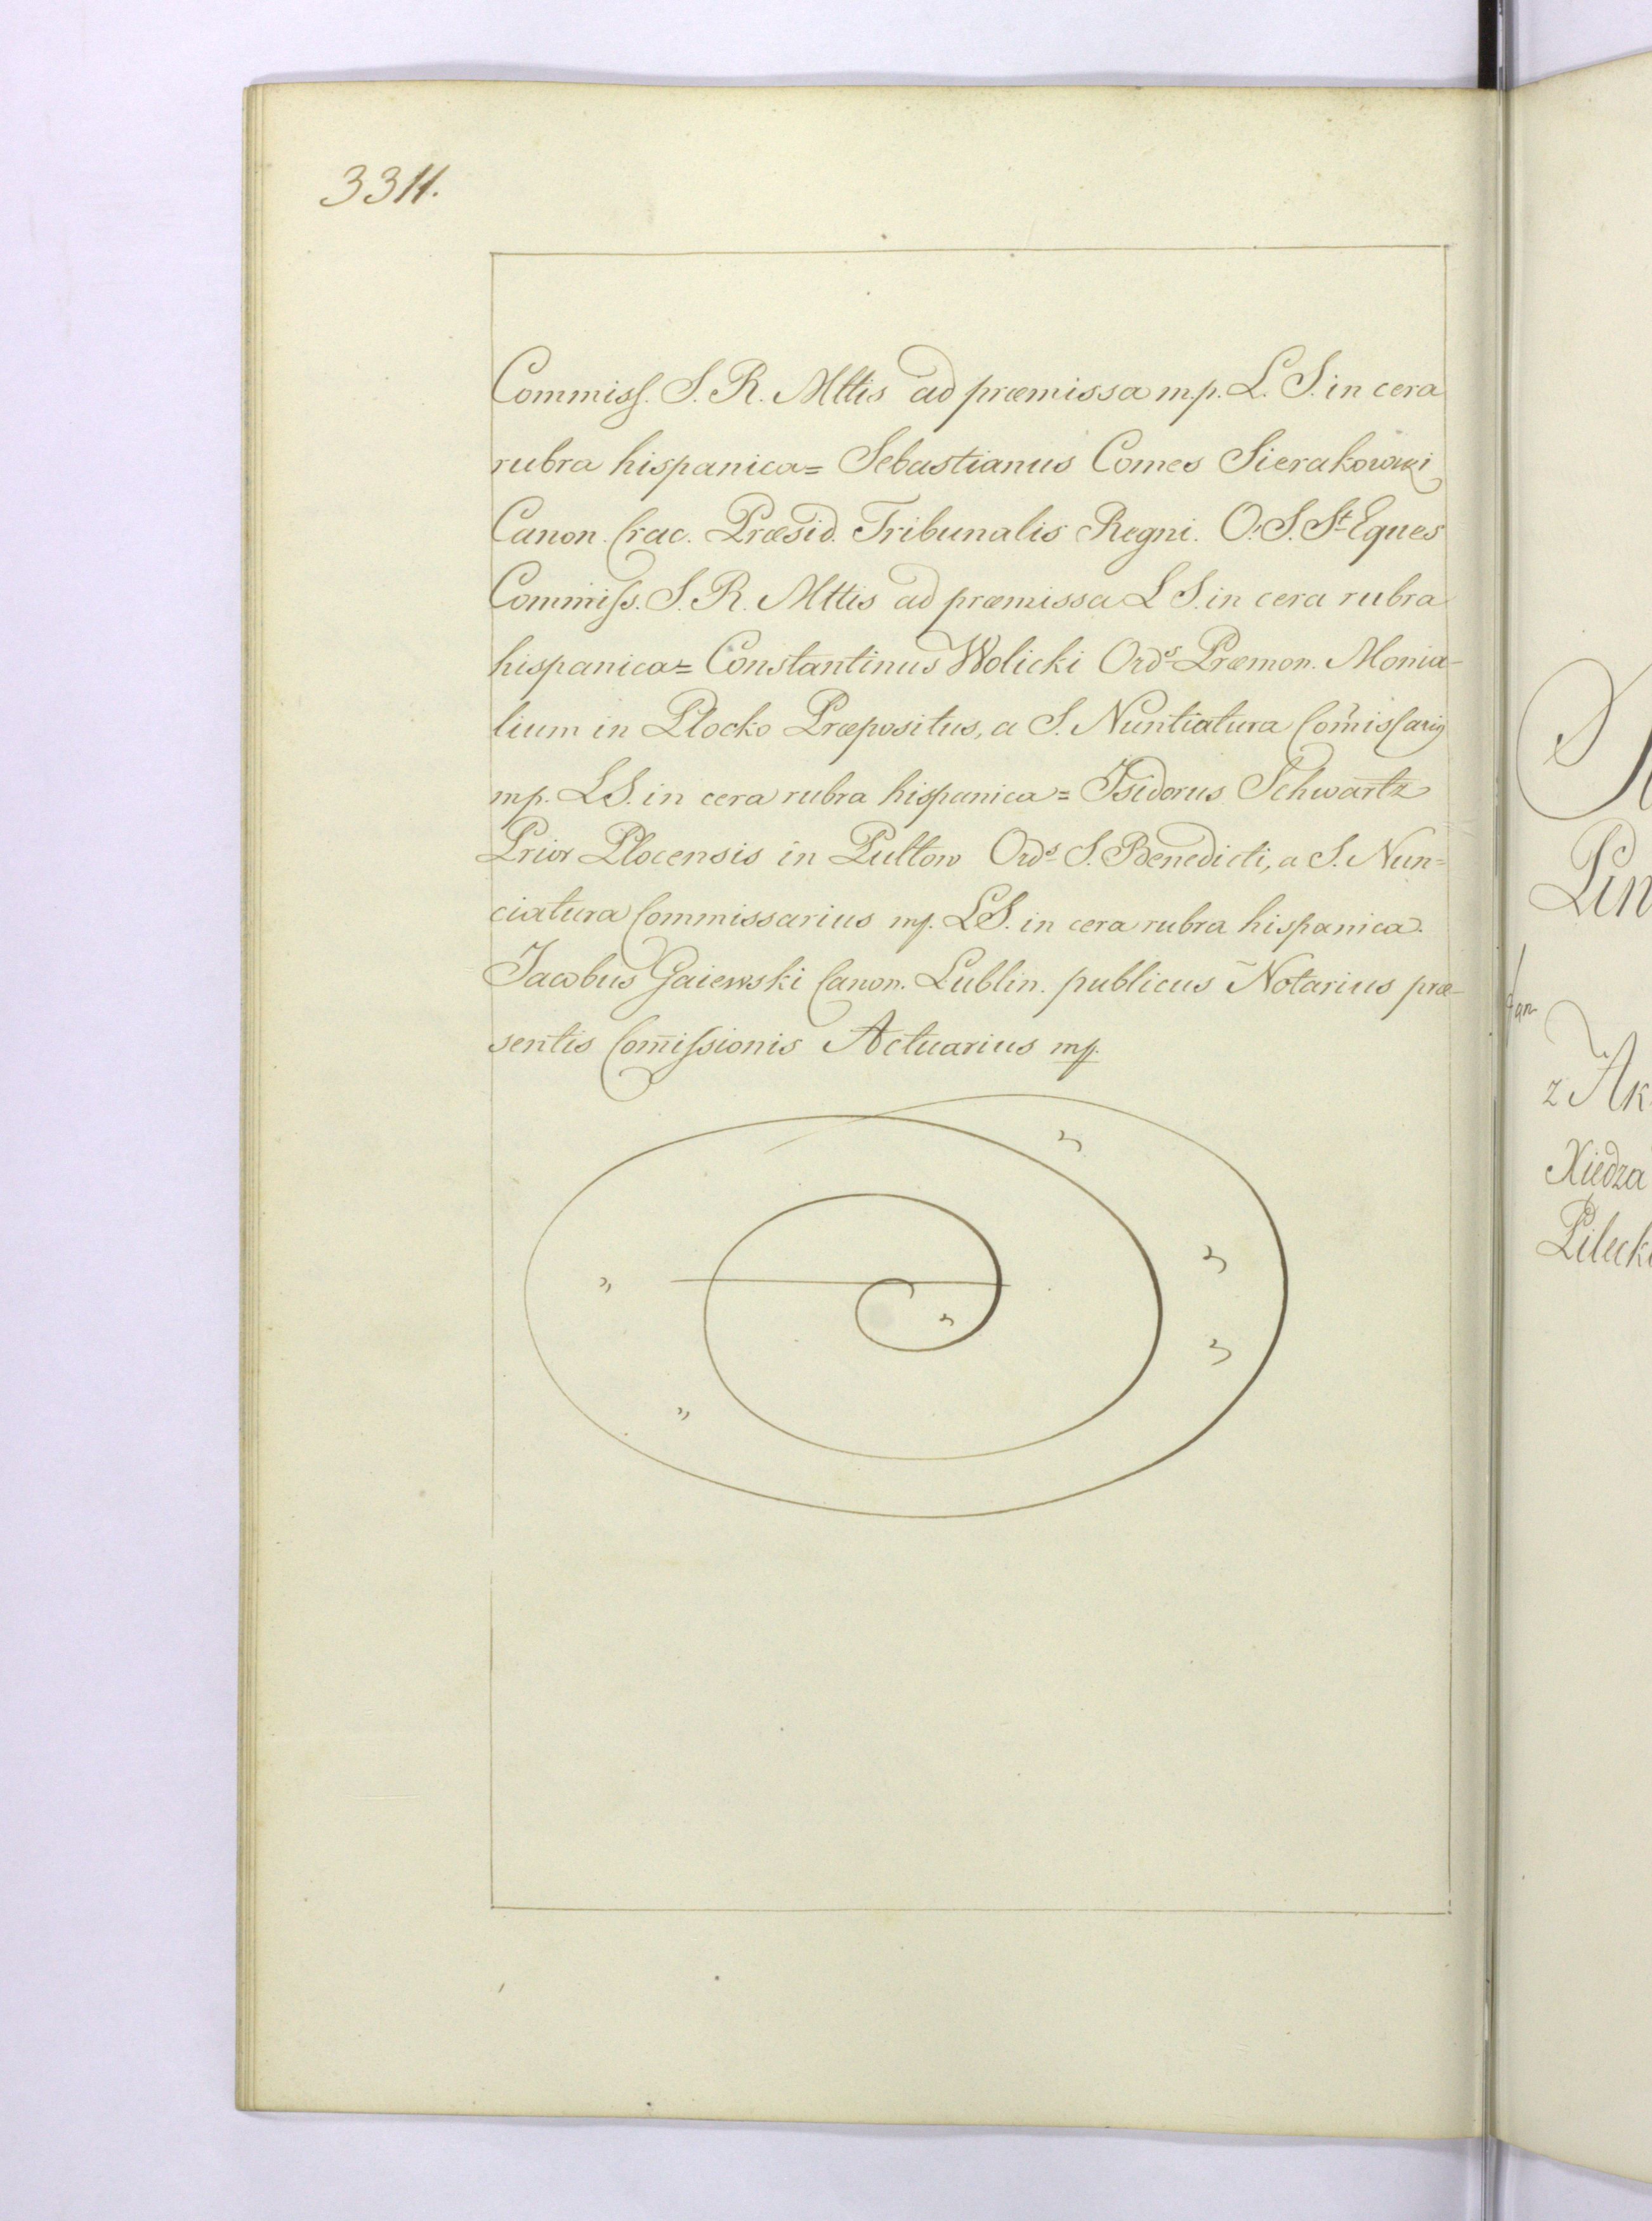 3311.
Commiss. S. R. Mttis ad præmissa mp. L. S. in cera
rubra hispanica = Sebastianus Comes Sierakowski
Canon. Crac. Præsid. Tribunalis Regni. O. S. St. Eques
Commiss. S. R. Mttis ad præmissa L S. in cera rubra
hispanica = Constantinus Wolicki Ords Præmon. Monia-
lium in Plocko Præpositus, a S. Nuntiatura Com̃issarius
mp. L S. in cera rubra hispanica = Isidorus Schwartz
Prior Plocensis in Pultow Ords S. Benedicti, a S. Nun=
ciatura Commissarius mp. L S. in cera rubra hispanica.
Jacobus Gaiewski Canon. Lublin. publicus Notarius præ-
sentis Com̄issionis Actuarius mp.
Pin
z Ak
Xiedza
Pileck